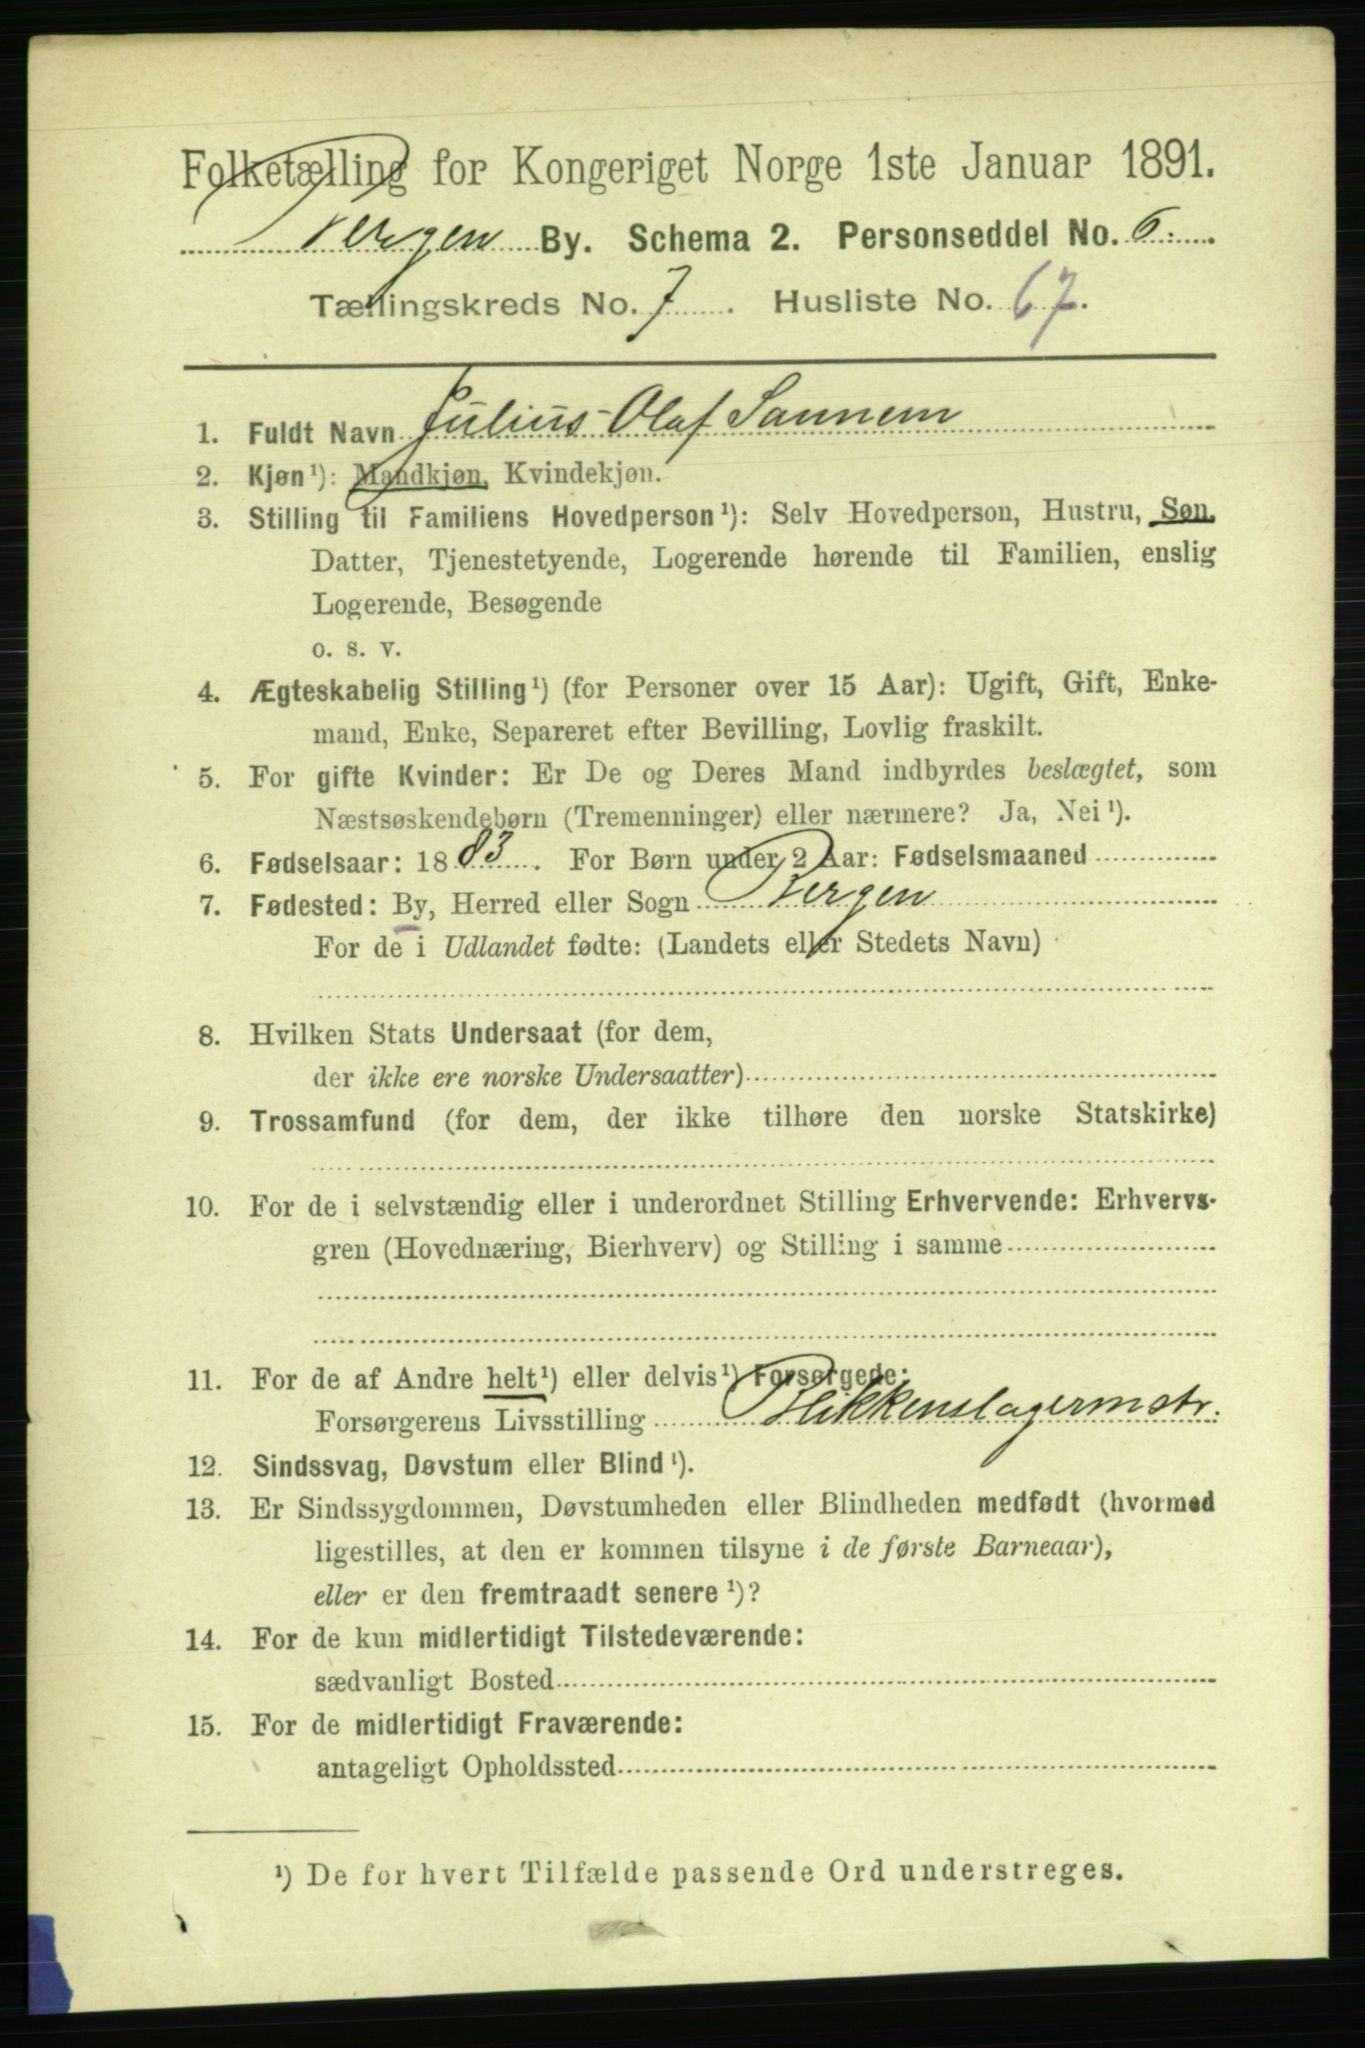 Folketælling for Kongeriget Norge 1ste Januar 1891.
Bergen By. Schema 2. Personseddel No. 6.
Tællingskreds No. 7. Husliste No. 67.
1. Fuldt Navn Julius Olaf Sannem
2. Kjøn¹): Mandkjøn, Kvindekjøn.
3. Stilling til Familiens Hovedperson¹): Selv Hovedperson, Hustru, Søn,
Datter, Tjenestetyende, Logerende hørende til Familien, enslig
Logerende, Besøgende
o. s. v.
4. Ægteskabelig Stilling¹) (for Personer over 15 Aar): Ugift, Gift, Enke-
mand, Enke, Separeret efter Bevilling, Lovlig fraskilt.
5. For gifte Kvinder: Er De og Deres Mand indbyrdes beslægtet, som
Næstsøskendebørn (Tremenninger) eller nærmere? Ja, Nei¹).
6. Fødselsaar: 1883. For Børn under 2 Aar: Fødselsmaaned
7. Fødested: By, Herred eller Sogn Bergen
For de i Udlandet fødte: (Landets eller Stedets Navn)
8. Hvilken Stats Undersaat (for dem,
der ikke ere norske Undersaatter)
9. Trossamfund (for dem, der ikke tilhøre den norske Statskirke)
10. For de i selvstændig eller i underordnet Stilling Erhvervende: Erhvervs-
gren (Hovednæring, Bierhverv) og Stilling i samme
11. For de af Andre helt¹) eller delvis¹) Forsørgede:
Forsørgerens Livsstilling Blikkenslagermstr.
12. Sindssvag, Døvstum eller Blind¹).
13. Er Sindssygdommen, Døvstumheden eller Blindheden medfødt (hvormed
ligestilles, at den er kommen tilsyne i de første Barneaar),
eller er den fremtraadt senere¹)?
14. For de kun midlertidigt Tilstedeværende:
sædvanligt Bosted
15. For de midlertidigt Fraværende:
antageligt Opholdssted
¹) De for hvert Tilfælde passende Ord understreges.